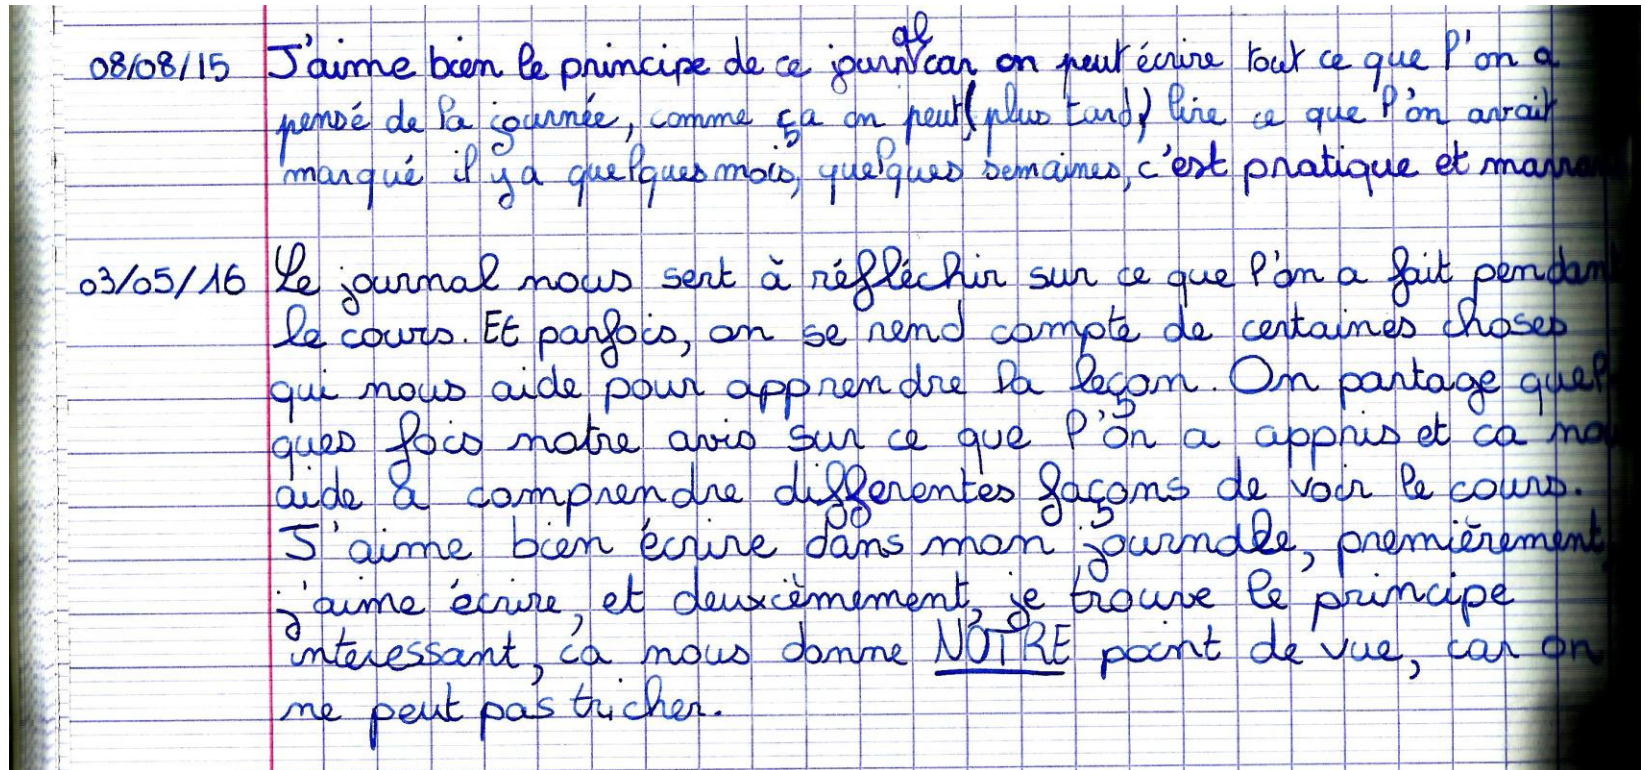 08/08/15 J'aime bien le principe de ce journal car on peut écrire tout ce que l'on a
pensé de la journée, comme ça on peut (plus tard) lire ce que l'on avait
marqué il y a quelques mois, quelques semaines, c'est pratique et marran
03/05/16 Le journal nous sert à réfléchir sur ce que l'on a fait pendant
le cours. Et parfois, on se rend compte de certaines choses
qui nous aide pour apprendre la leçon. On partage quel
ques fois notre avis sur ce que l'on a appris et ca nou
aide à comprendre differentes façons de voir le cours.
J'aime bien écrire dans mon journale, premièrement
j'aime écrire, et deuxièmement, je trouve le principe
interessant, ca nous donne NOTRE point de vue, car on
ne peut pas tricher.